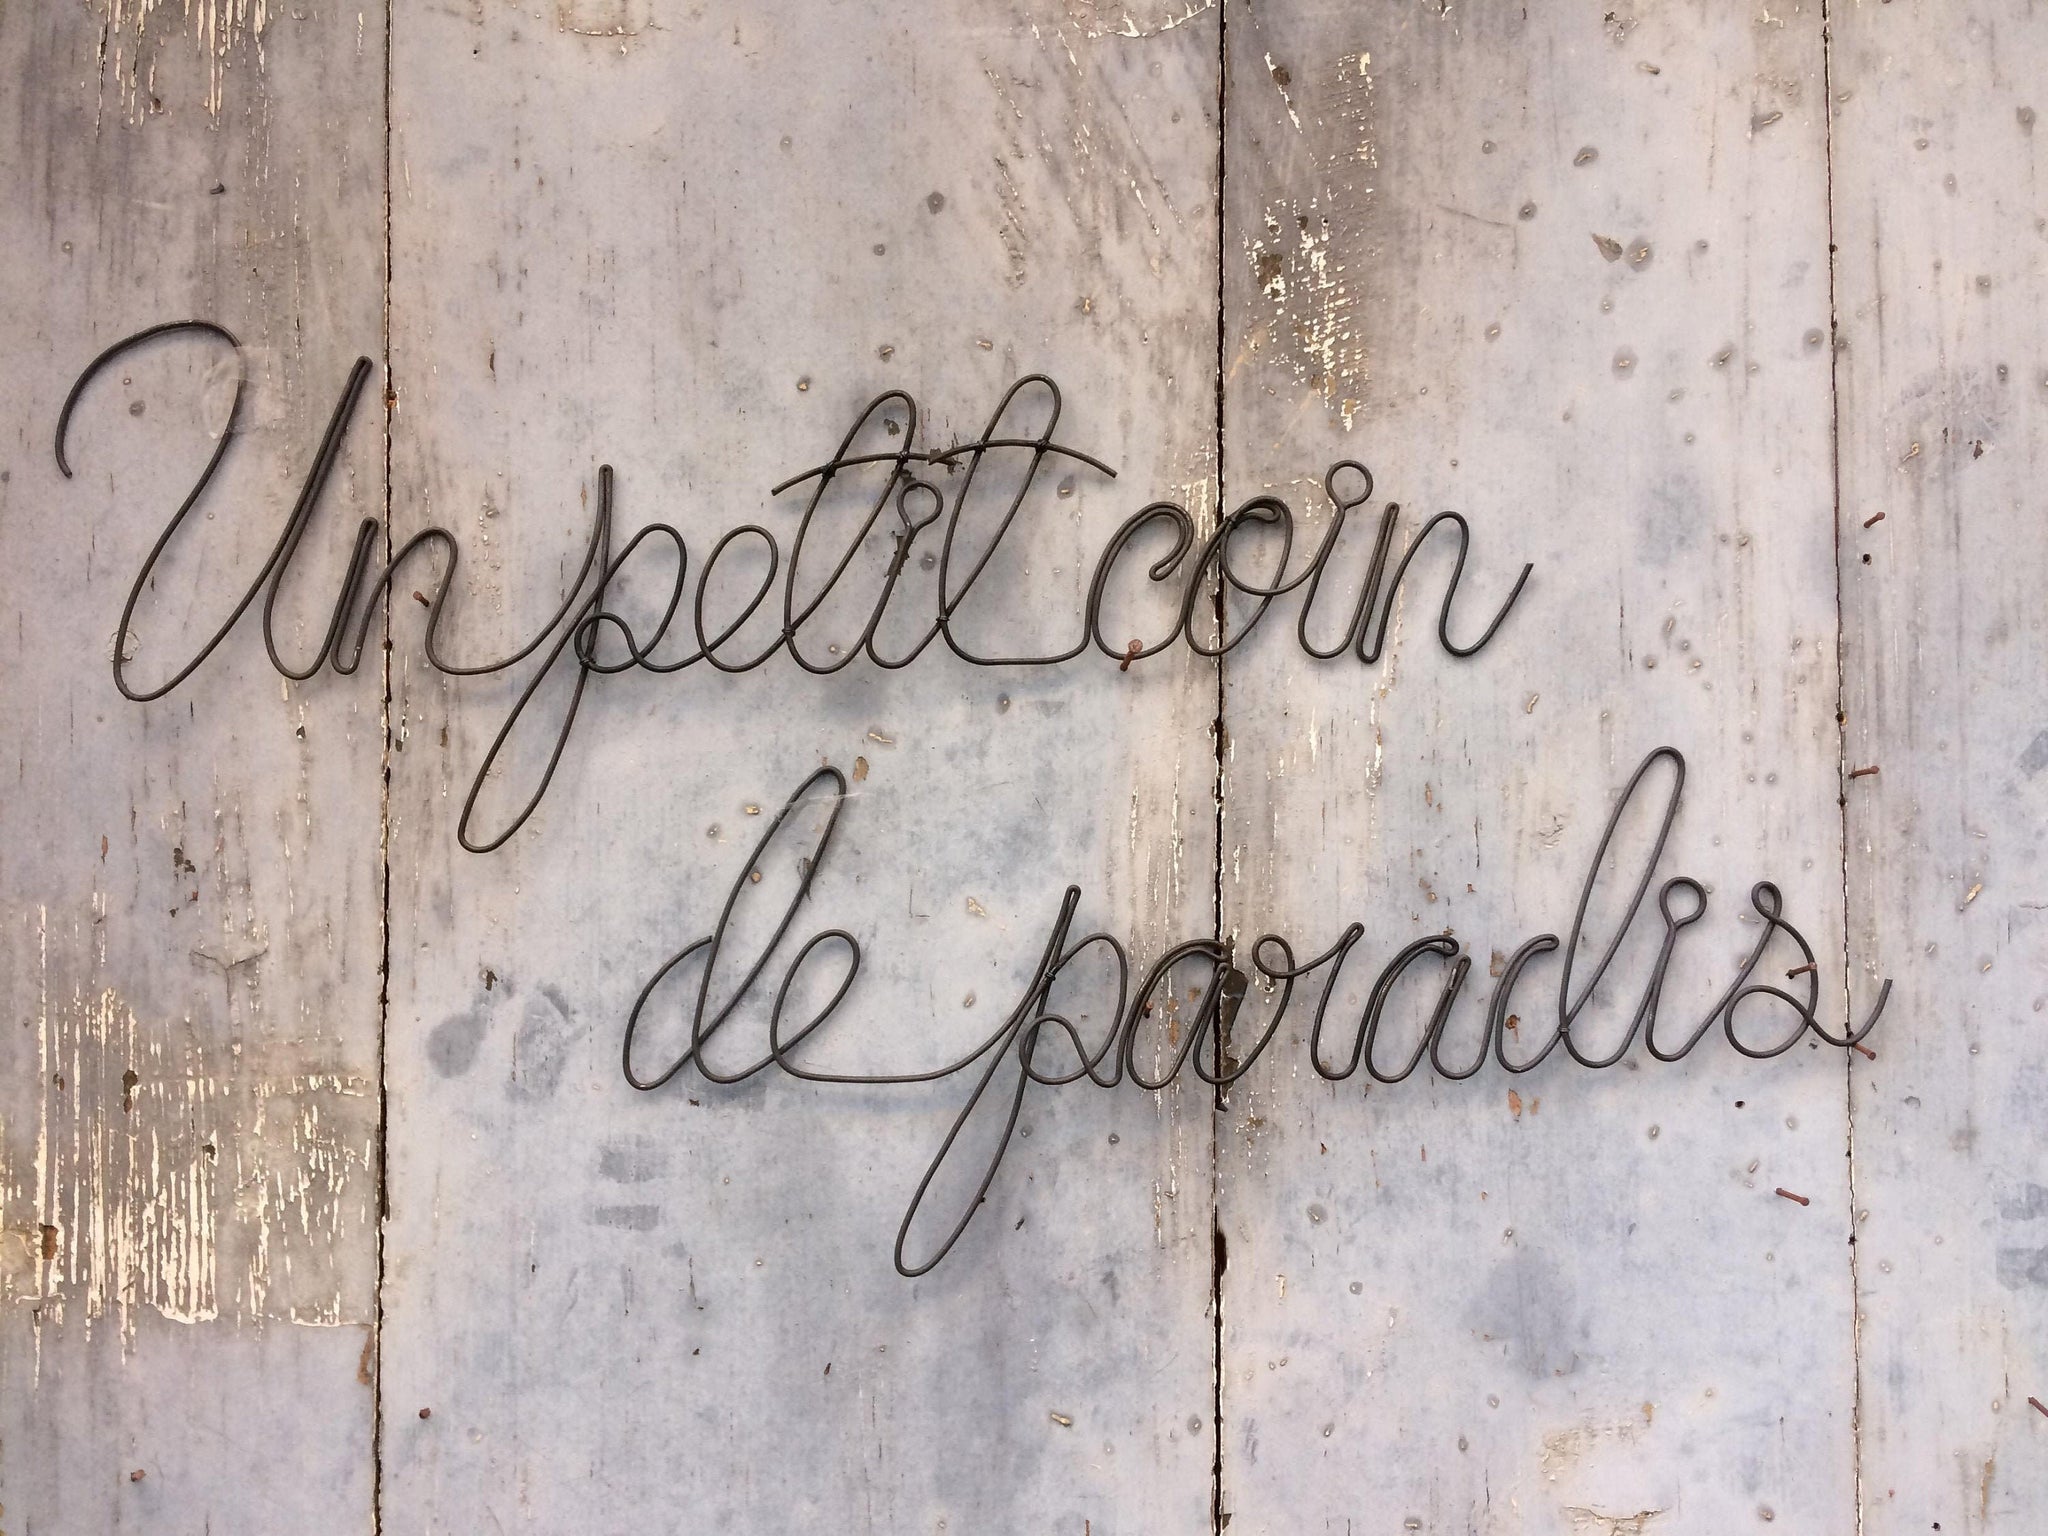 Un petit coin
de paradis